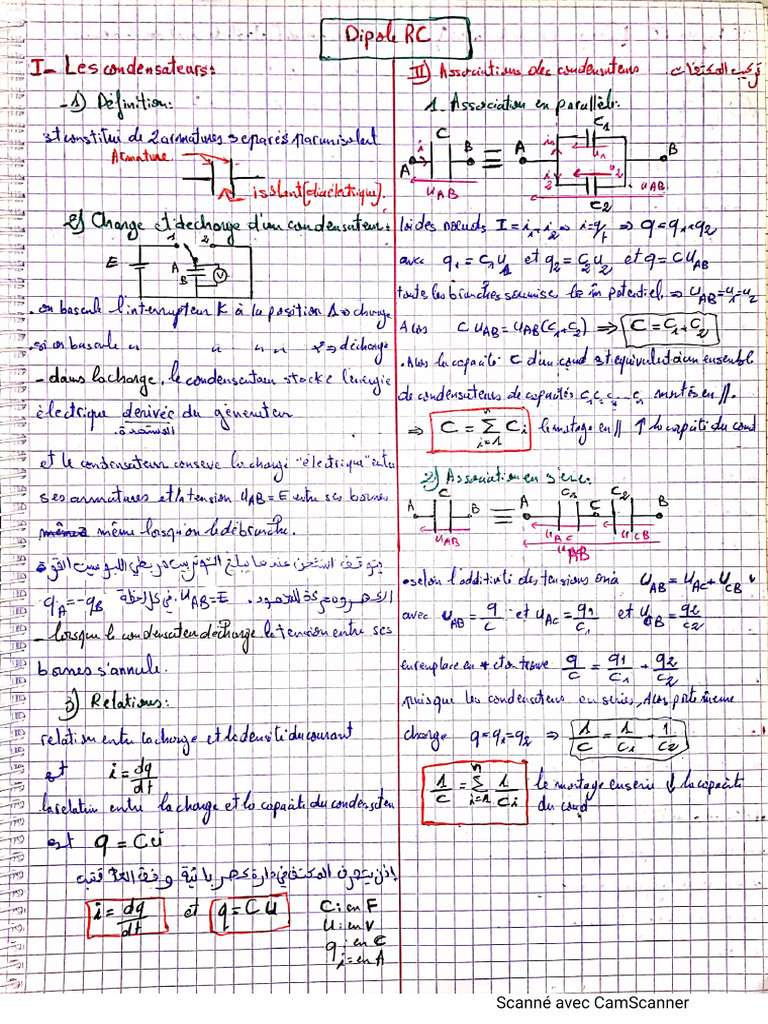 Dipole RC
I- Les condensateurs:
-1) Définition:
est constitué de 2 armatures séparés par un isolant
Armature
isolant (diélectrique).
2) Charge et décharge d'un condensateur:
1 2
E
A
B
V
. on bascule l'interrupteur K à la position 1 => charge
. si on bascule " " " " 2 => décharge
- dans la charge, le condensateur stocke l'énergie
électrique dérivée du générateur
المستمدة.
et le condensateur conserve la charge "électrique" entre
ses armatures et la tension U_AB = E entre ses bornes
même lorsqu'on le débranche.
يتوقف الشحن عندما يبلغ التوتر بين مربطي اللبوسين القوة
q_A = -q_B في كل لحظة. U_AB = E. الكهرومحركة للعمود.
- lorsque le condensateur décharge la tension entre ses
bornes s'annule.
3) Relations:
relation entre la charge et la densité du courant
est i = dq/dt
la relation entre la charge et la capacité du condensateur
est q = Cu
إذن يتصرف المكثف في دارة كهربائية وفق العلاقتين
i = dq/dt et q = C U
C: en F
U: en V
q: en C
i: en A
II) Associations des condensateurs تركيب المكثفات
1. Association en parallèle:
A i C B U_AB ≡ A i1 C1 u1 i2 u2 C2 U_AB B
loi des nœuds I = i1 + i2 => i = q/t => q = q1 + q2
avec q1 = C1 u1 et q2 = C2 u2 et q = C U_AB
toute les branches soumise le m potentiel => U_AB = u1 = u2
Alos C U_AB = U_AB (C1 + C2) => C = C1 + C2
. Alos la capacité C d'un cond est équivalut à un ensemble
de condensateurs de capacités C1 C2 ... Cn montés en //.
=> C = Σ(i=1→n) Ci le montage en // ↑ la capacité du cond
2) Association en série:
A C B U_AB ≡ A C1 C C2 B U_AC U_CB U_AB
. selon l'additivité des tensions on à U_AB = U_AC + U_CB
avec U_AB = q/C et U_AC = q1/C1 et U_CB = q2/C2
en remplace en * et on trouve q/C = q1/C1 + q2/C2
puisque les condensateurs en séries, Alos porte même
charge q = q1 = q2 => 1/C = 1/C1 + 1/C2
1/C = Σ(i=1→n) 1/Ci le montage en serie ↓ la capacité
du cond
Scanné avec CamScanner